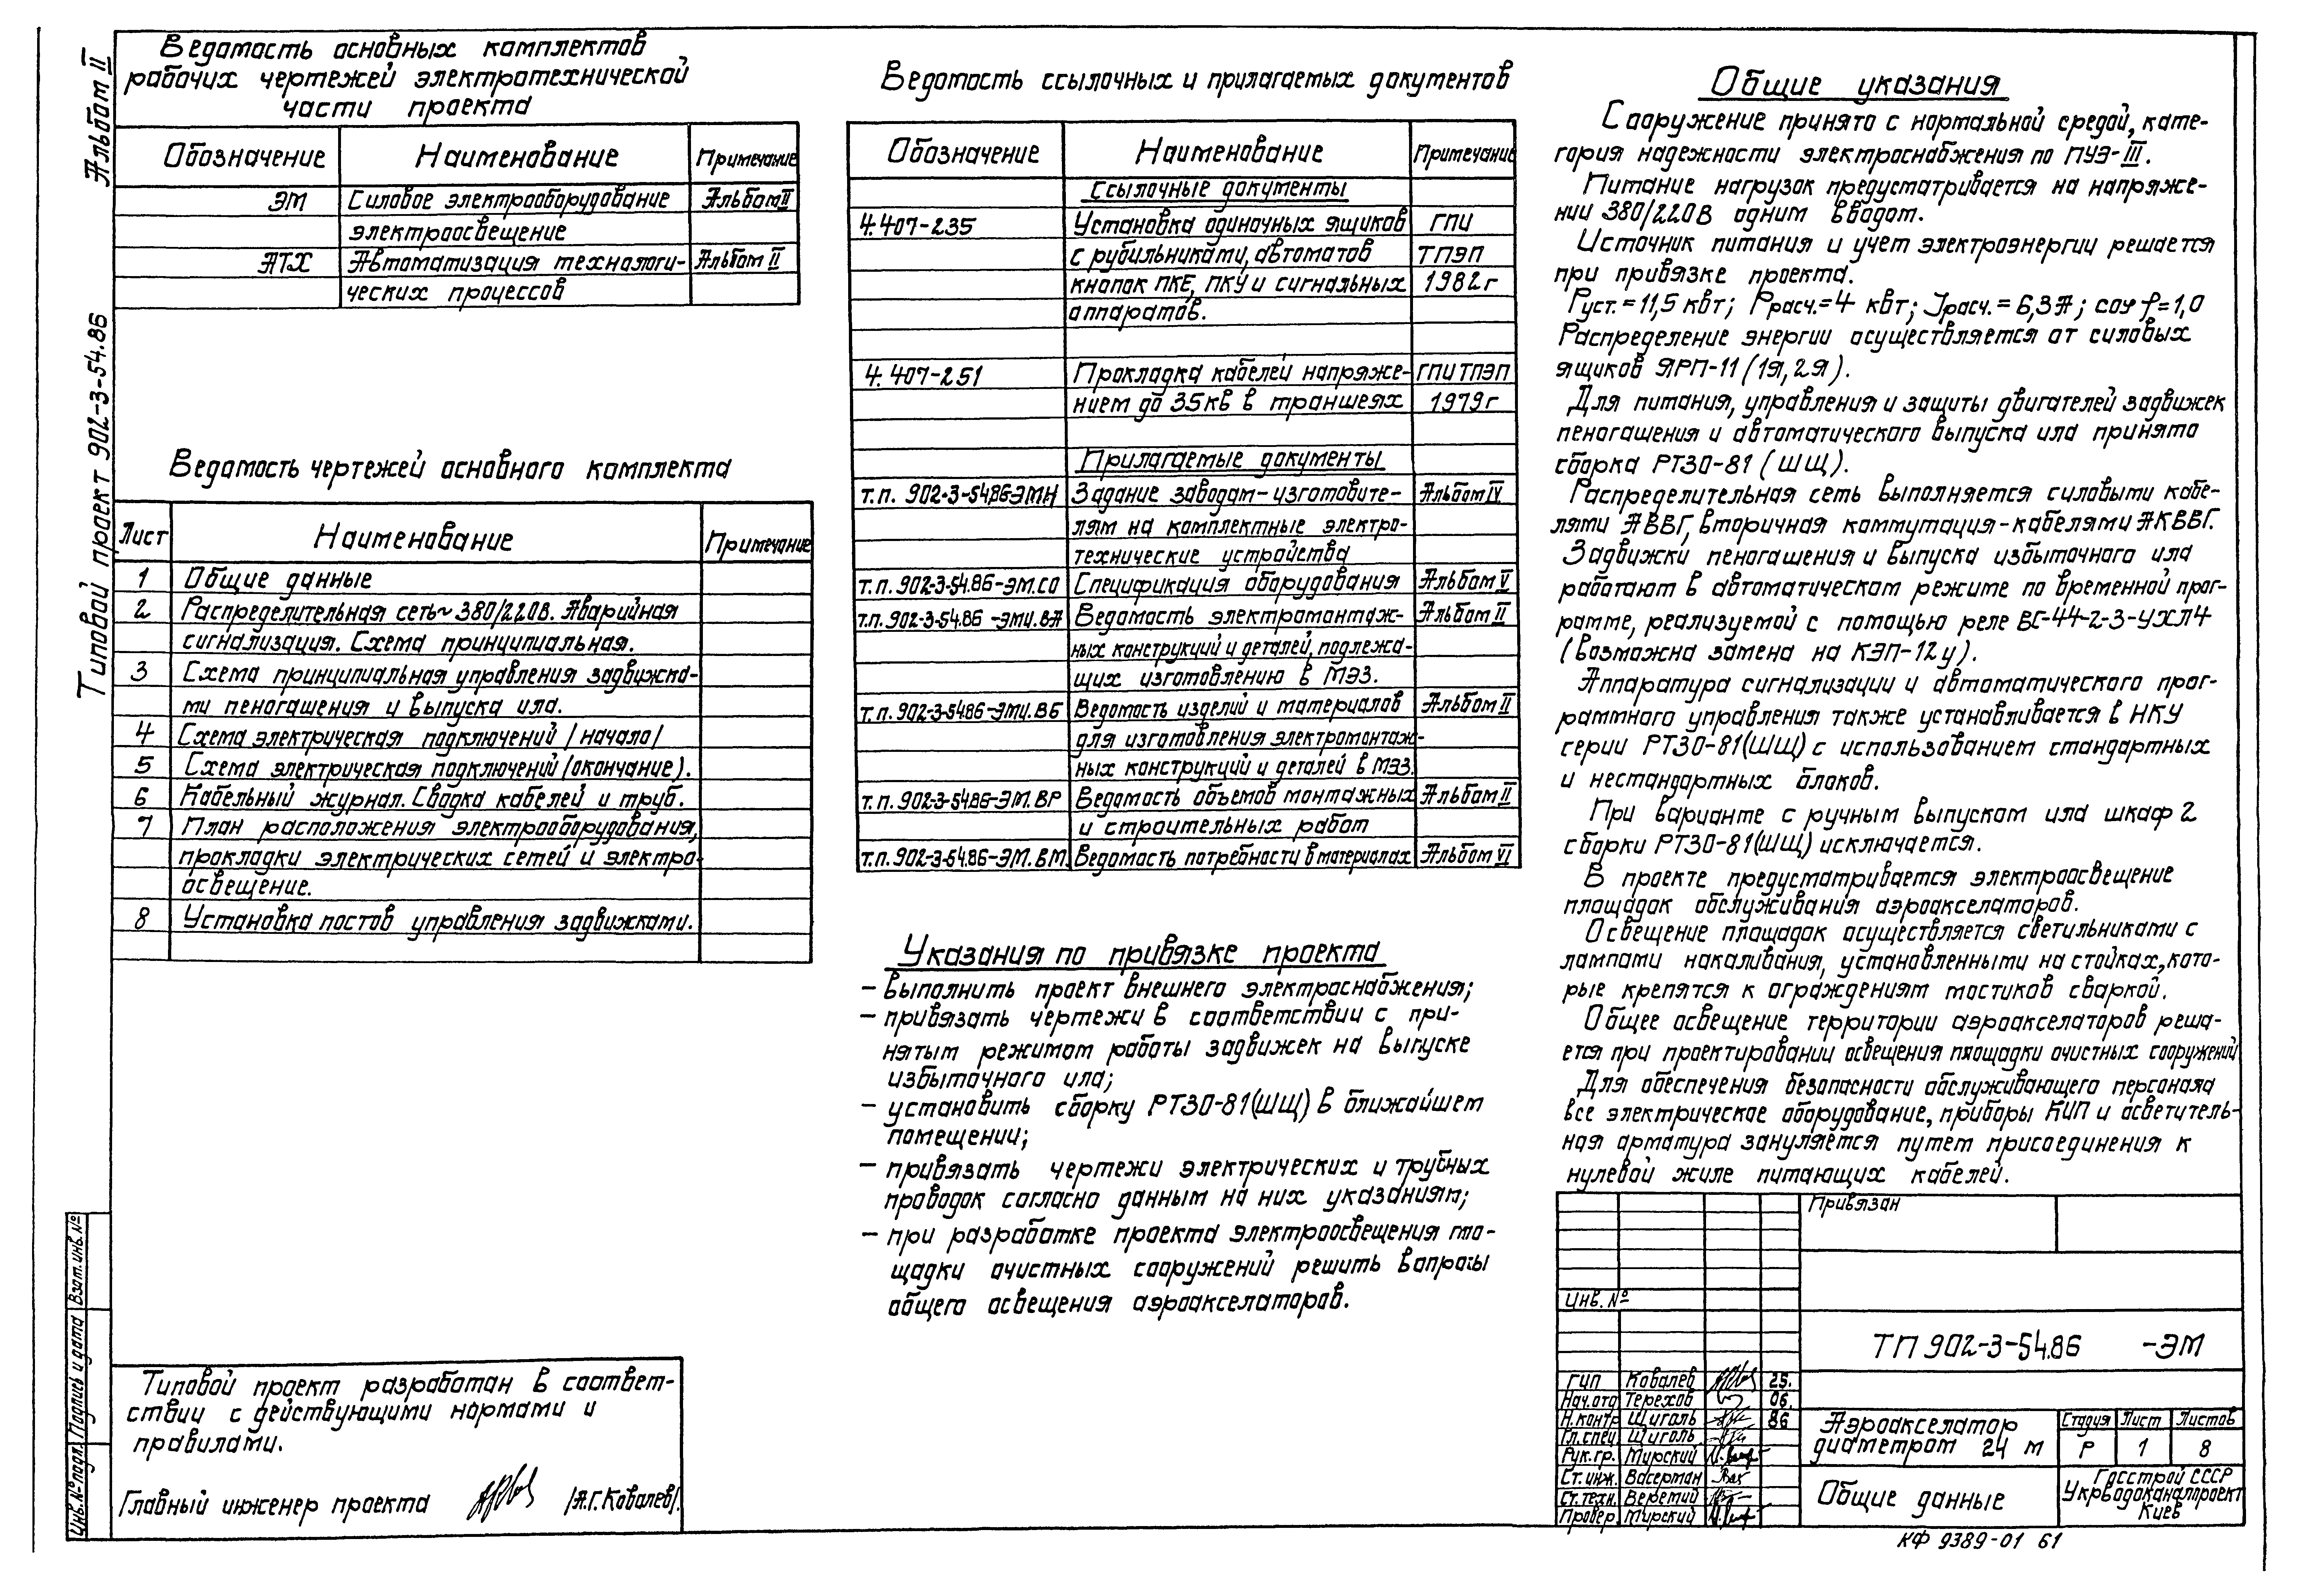 Альбом II
Типовой проект 902-3-54.86
Ведомость основных комплектов
рабочих чертежей электротехнической
части проекта
Обозначение Наименование Примечание
ЭМ Силовое электрооборудование Альбом II
электроосвещение
АТХ Автоматизация технологи- Альбом II
ческих процессов
Ведомость чертежей основного комплекта
Лист Наименование Примечание
1 Общие данные
2 Распределительная сеть ~ 380/220В. Аварийная
сигнализация. Схема принципиальная.
3 Схема принципиальная управления задвижка-
ми пеногашения и выпуска ила.
4 Схема электрическая подключений /начало/
5 Схема электрическая подключений (окончание).
6 Кабельный журнал. Сводка кабелей и труб.
7 План расположения электрооборудования,
прокладки электрических сетей и электро-
освещение.
8 Установка постов управления задвижками.
Типовой проект разработан в соответ-
ствии с действующими нормами и
правилами.
Главный инженер проекта /А.Г.Ковалев/.
Ведомость ссылочных и прилагаемых документов
Обозначение Наименование Примечание
Ссылочные документы
4.407-235 Установка одиночных ящиков ГПИ
с рубильниками, автоматов ТПЭП
кнопок ПКЕ, ПКУ и сигнальных 1982г
аппаратов.
4.407-251 Прокладка кабелей напряже- ГПИ ТПЭП
нием до 35кв в траншеях 1979г
Прилагаемые документы
т.п. 902-3-54.86-ЭМН Задание заводам-изготовите- Альбом IV
лям на комплектные электро-
технические устройства
т.п. 902-3-54.86-ЭМ.СО Спецификация оборудования Альбом V
т.п. 902-3-54.86 -ЭМИ.ВА Ведомость электромонтаж- Альбом II
ных конструкций и деталей, подлежа-
щих изготовлению в МЭЗ.
т.п. 902-3-54.86-ЭМИ.ВБ Ведомость изделий и материалов Альбом II
для изготовления электромонтаж-
ных конструкций и деталей в МЭЗ.
т.п. 902-3-54.86-ЭМ.ВР Ведомость объемов монтажных Альбом II
и строительных работ
т.п. 902-3-54.86-ЭМ.ВМ. Ведомость потребности в материалах Альбом VI
Указания по привязке проекта
- выполнить проект внешнего электроснабжения;
- привязать чертежи в соответствии с при-
нятым режимом работы задвижек на выпуске
избыточного ила;
- установить сборку РТ30-81(ШЩ) в ближайшем
помещении;
- привязать чертежи электрических и трубных
проводок согласно данным на них указаниям;
- при разработке проекта электроосвещения пло-
щадки очистных сооружений решить вопросы
общего освещения аэроакселаторов.
Общие указания
Сооружение принято с нормальной средой, кате-
гория надежности электроснабжения по ПУЭ-III.
Питание нагрузок предусматривается на напряже-
нии 380/220В одним вводом.
Источник питания и учет электроэнергии решается
при привязке проекта.
Руст.=11,5 квт; Ррасч.=4 квт; Јрасч.=6,3А; cos φ=1,0
Распределение энергии осуществляется от силовых
ящиков ЯРП-11 (1я, 2я).
Для питания, управления и защиты двигателей задвижек
пеногашения и автоматического выпуска ила принята
сборка РТ30-81 (ШЩ).
Распределительная сеть выполняется силовыми кабе-
лями АВВГ, вторичная коммутация-кабелями АКВВГ.
Задвижки пеногашения и выпуска избыточного ила
работают в автоматическом режиме по временной прог-
рамме, реализуемой с помощью реле ВС-44-2-3-УХЛ4
(возможна замена на КЭП-12у).
Аппаратура сигнализации и автоматического прог-
раммного управления также устанавливается в НКУ
серии РТ30-81(ШЩ) с использованием стандартных
и нестандартных блоков.
При варианте с ручным выпуском ила шкаф 2
сборки РТ30-81(ШЩ) исключается.
В проекте предусматривается электроосвещение
площадок обслуживания аэроакселаторов.
Освещение площадок осуществляется светильниками с
лампами накаливания, установленными на стойках, кото-
рые крепятся к ограждениям мостиков сваркой.
Общее освещение территории аэроакселаторов реша-
ется при проектировании освещения площадки очистных сооружений
Для обеспечения безопасности обслуживающего персонала
все электрическое оборудование, приборы КИП и осветитель-
ная арматура зануляется путем присоединения к
нулевой жиле питающих кабелей.
Привязан
Инв. №
ТП 902-3-54.86 -ЭМ
ГИП Ковалев 25.
Нач.отд Терехов 06.
Н.контр Щиголь 86
Гл.спец Щиголь
Рук.гр. Мирский
Ст.инж. Васерман
Ст.техн. Веремий
Провер. Мирский
Аэроакселатор
диаметром 24 м
Стадия Лист Листов
Р 1 8
Общие данные
Госстрой СССР
Укрводоканалпроект
Киев
Инв.№ подл. Подпись и дата Взам.инв.№
КФ 9389-01 61